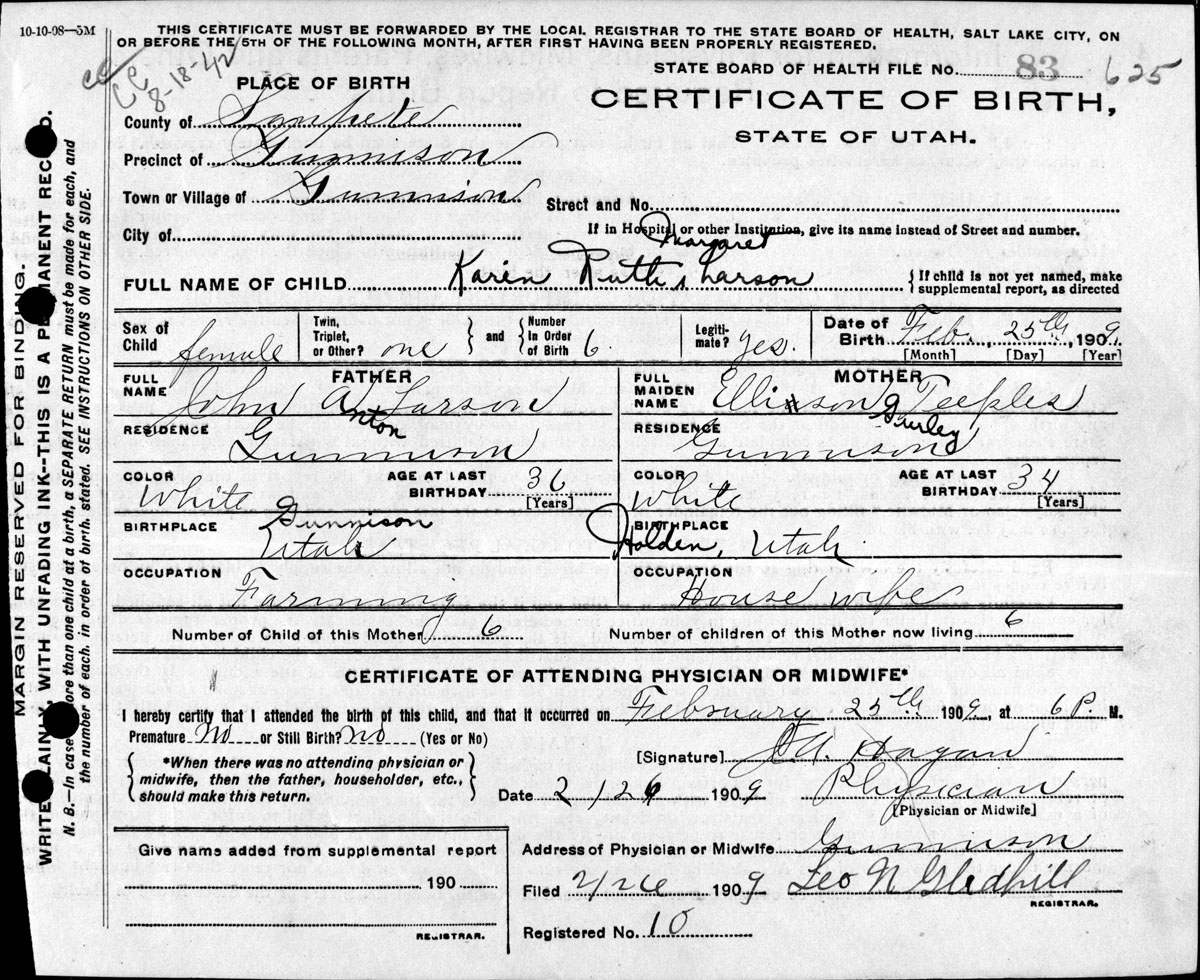 10-10-08—5M
THIS CERTIFICATE MUST BE FORWARDED BY THE LOCAL REGISTRAR TO THE STATE BOARD OF HEALTH, SALT LAKE CITY, ON
OR BEFORE THE 5TH OF THE FOLLOWING MONTH, AFTER FIRST HAVING BEEN PROPERLY REGISTERED.
8-18-42
STATE BOARD OF HEALTH FILE NO. 83 625
PLACE OF BIRTH
CERTIFICATE OF BIRTH,
STATE OF UTAH.
County of Sanpete
Precinct of Gunnison
Town or Village of Gunnison
Street and No.
City of
If in Hospital or other Institution, give its name instead of Street and number.
Margaret
FULL NAME OF CHILD Karen Ruth Larson
{If child is not yet named, make
supplemental report, as directed
Sex of Child female
Twin, Triplet, or Other? one } and { Number In Order of Birth 6
Legiti- mate? yes.
Date of Birth Feb., 25th, 1909
[Month] [Day] [Year]
FATHER
FULL NAME John Anton Larson
RESIDENCE Gunnison
COLOR White
AGE AT LAST BIRTHDAY 36
[Years]
BIRTHPLACE Gunnison
Utah
OCCUPATION Farming
MOTHER
FULL MAIDEN NAME Ellison Teeples
RESIDENCE Gunnison
COLOR White
AGE AT LAST BIRTHDAY 34
[Years]
BIRTHPLACE Holden, Utah
OCCUPATION House wife
Number of Child of this Mother 6
Number of children of this Mother now living 6
CERTIFICATE OF ATTENDING PHYSICIAN OR MIDWIFE*
I hereby certify that I attended the birth of this child, and that it occurred on February 25th 1909, at 6 P. M.
Premature No or Still Birth? No (Yes or No)
{ *When there was no attending physician or
midwife, then the father, householder, etc.,
should make this return. }
[Signature] Hagan
Date 2/26 1909 Physician
[Physician or Midwife]
Give name added from supplemental report
190
REGISTRAR.
Address of Physician or Midwife Gunnison
Filed 2/26 1909 Leo N Gledhill
REGISTRAR.
Registered No. 10
MARGIN RESERVED FOR BINDING.
WRITE PLAINLY, WITH UNFADING INK--THIS IS A PERMANENT RECORD.
N. B.—In case more than one child at a birth, a SEPARATE RETURN must be made for each, and
the number of each, in order of birth, stated. SEE INSTRUCTIONS ON OTHER SIDE.